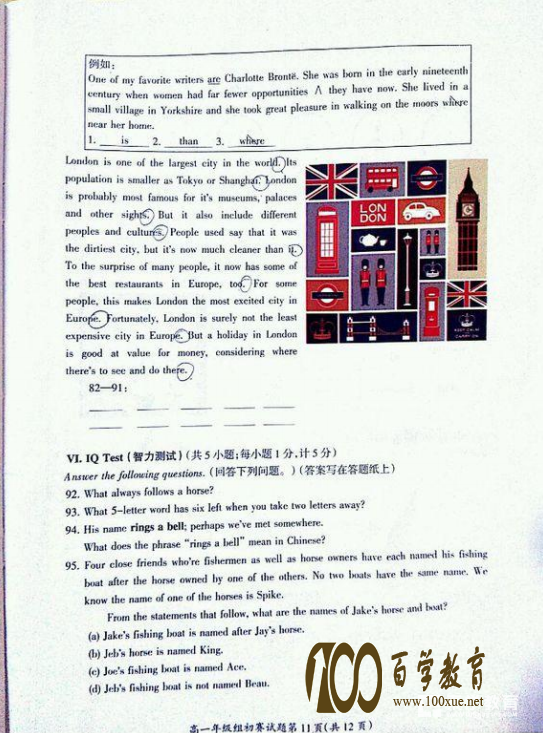 例如：
One of my favorite writers are Charlotte Brontë. She was born in the early nineteenth
century when women had far fewer opportunities ∧ they have now. She lived in a
small village in Yorkshire and she took great pleasure in walking on the moors where
near her home.
1. is 2. than 3. where
London is one of the largest city in the world. Its
population is smaller as Tokyo or Shanghai. London
is probably most famous for it's museums, palaces
and other sights. But it also include different
peoples and cultures. People used say that it was
the dirtiest city, but it's now much cleaner than it.
To the surprise of many people, it now has some of
the best restaurants in Europe, too. For some
people, this makes London the most excited city in
Europe. Fortunately, London is surely not the least
expensive city in Europe. But a holiday in London
is good at value for money, considering where
there's to see and do there.
LON
DON
KEEP CALM
82—91:
VI. IQ Test (智力测试) (共5小题;每小题1分,计5分)
Answer the following questions. (回答下列问题。)(答案写在答题纸上)
92. What always follows a horse?
93. What 5-letter word has six left when you take two letters away?
94. His name rings a bell; perhaps we've met somewhere.
What does the phrase "rings a bell" mean in Chinese?
95. Four close friends who're fishermen as well as horse owners have each named his fishing
boat after the horse owned by one of the others. No two boats have the same name. We
know the name of one of the horses is Spike.
From the statements that follow, what are the names of Jake's horse and boat?
(a) Jake's fishing boat is named after Jay's horse.
(b) Jeb's horse is named King.
(c) Joe's fishing boat is named Ace.
(d) Jeb's fishing boat is not named Beau.
100 百学教育
www.100xue.net
高一年级组初赛试题第11页(共12页)